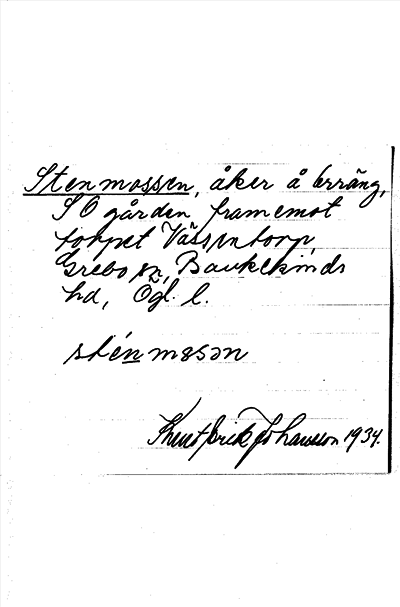 Stenmossen, åker å terräng,
S O gården framemot
torpet Vässentorp,
Grebo sn, Bankekinds
hd, Ögl. l.
sténmosən
Knut Erik Johansson 1934.